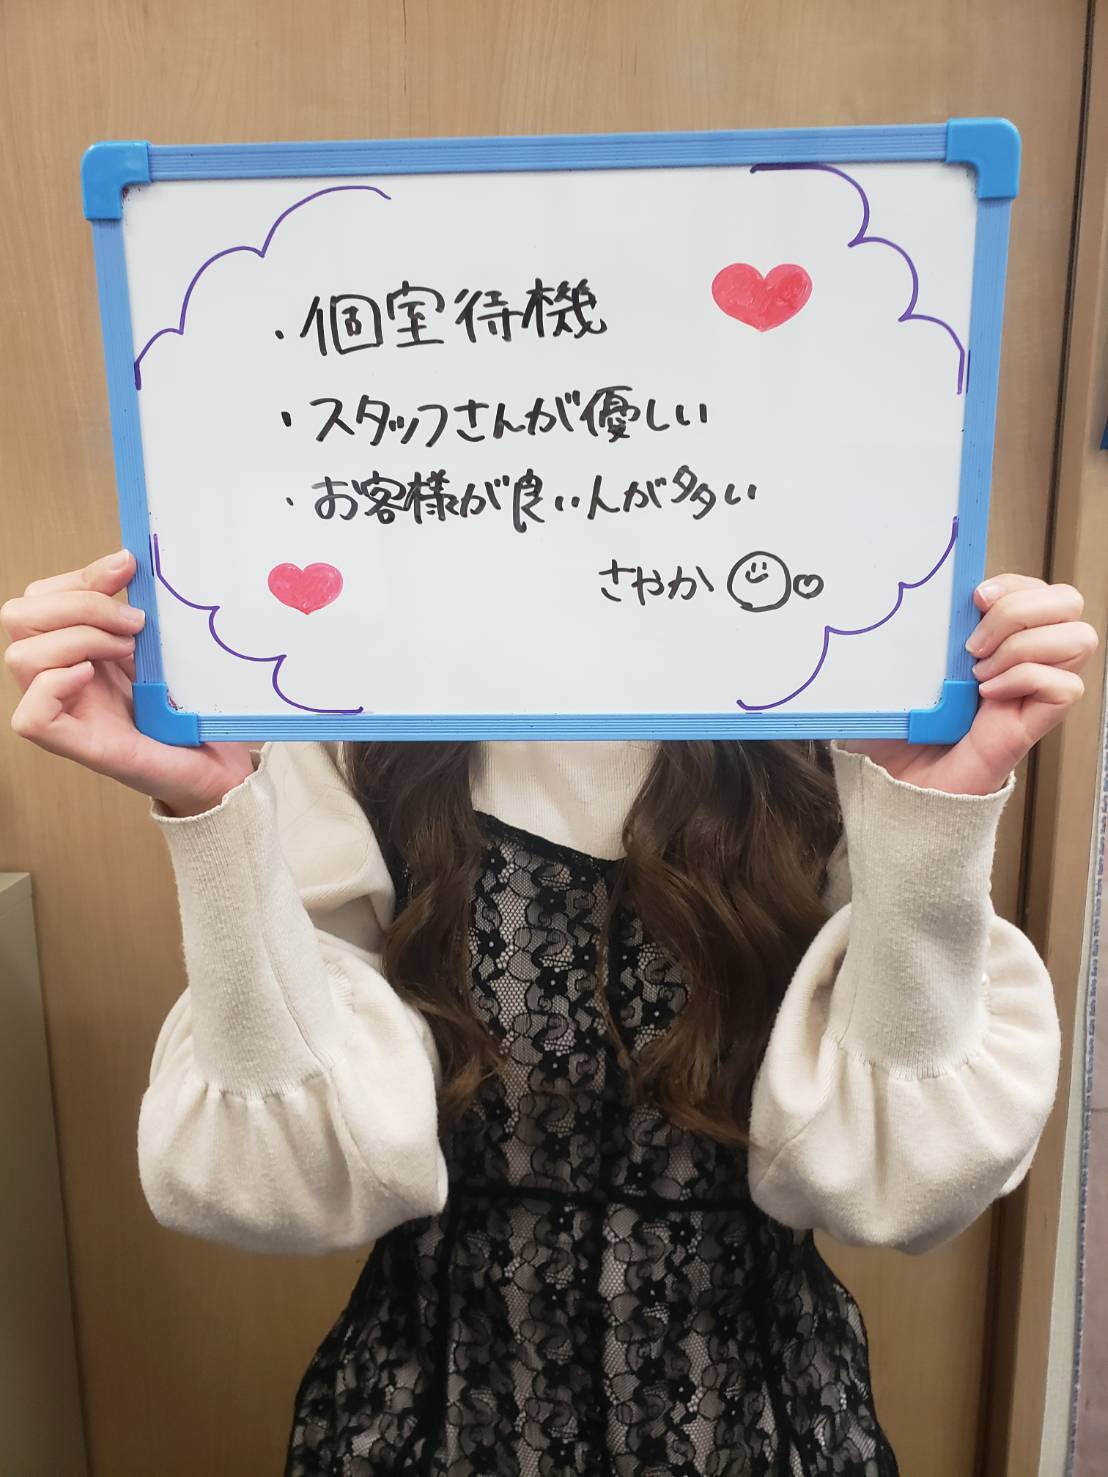 ・個室待機
・スタッフさんが優しい
・お客様が良い人が多い
さやか